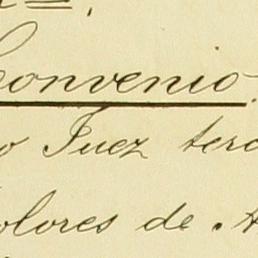 Convenio
o Juez terc
olores de A